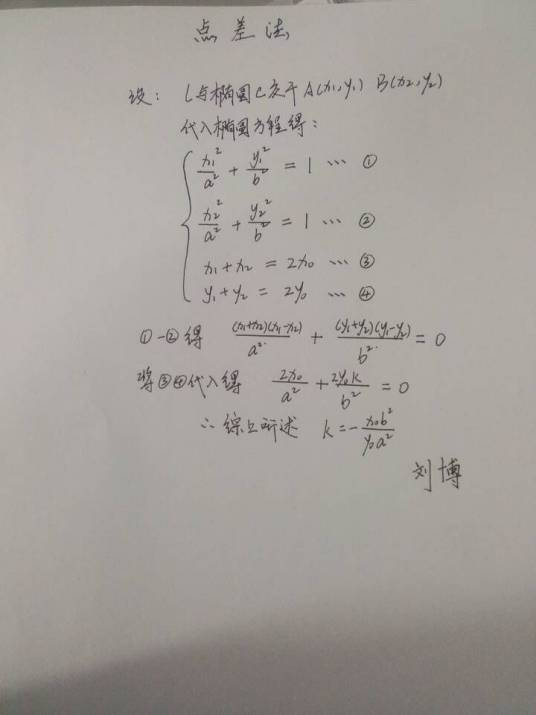 点差法
设: l与椭圆C交于A(x₁,y₁) B(x₂,y₂)
代入椭圆方程得:
x₁²/a² + y₁²/b² = 1 … ①
x₂²/a² + y₂²/b² = 1 … ②
x₁+x₂ = 2x₀ … ③
y₁+y₂ = 2y₀ … ④
①-②得 (x₁+x₂)(x₁-x₂)/a² + (y₁+y₂)(y₁-y₂)/b² = 0
将③④代入得 2x₀/a² + 2y₀k/b² = 0
∴综上所述 k=-x₀b²/y₀a²
刘博